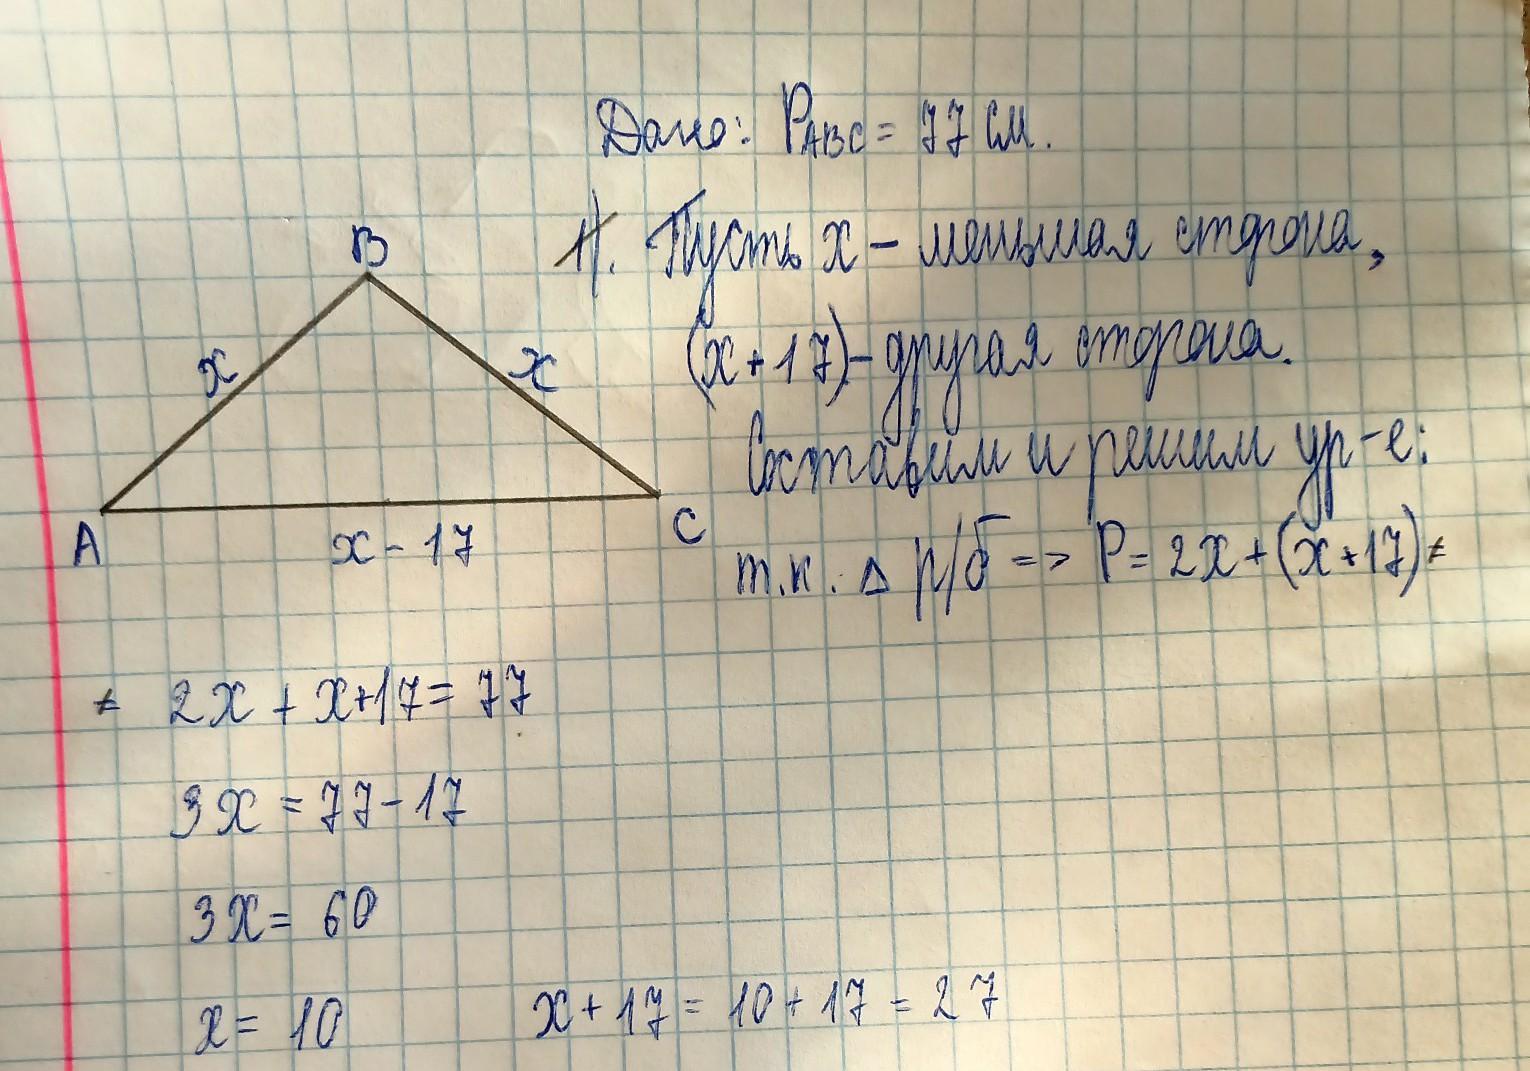 Дано: PABC = 77 см.
1). Пусть x - меньшая сторона,
(x+17) - другая сторона.
Составим и решим ур-е:
т.к. Δ р/б => P = 2x + (x+17) =
B
x
x
A
C
x - 17
= 2x + x+17 = 77
3x = 77 - 17
3x = 60
x = 10
x + 17 = 10 + 17 = 27